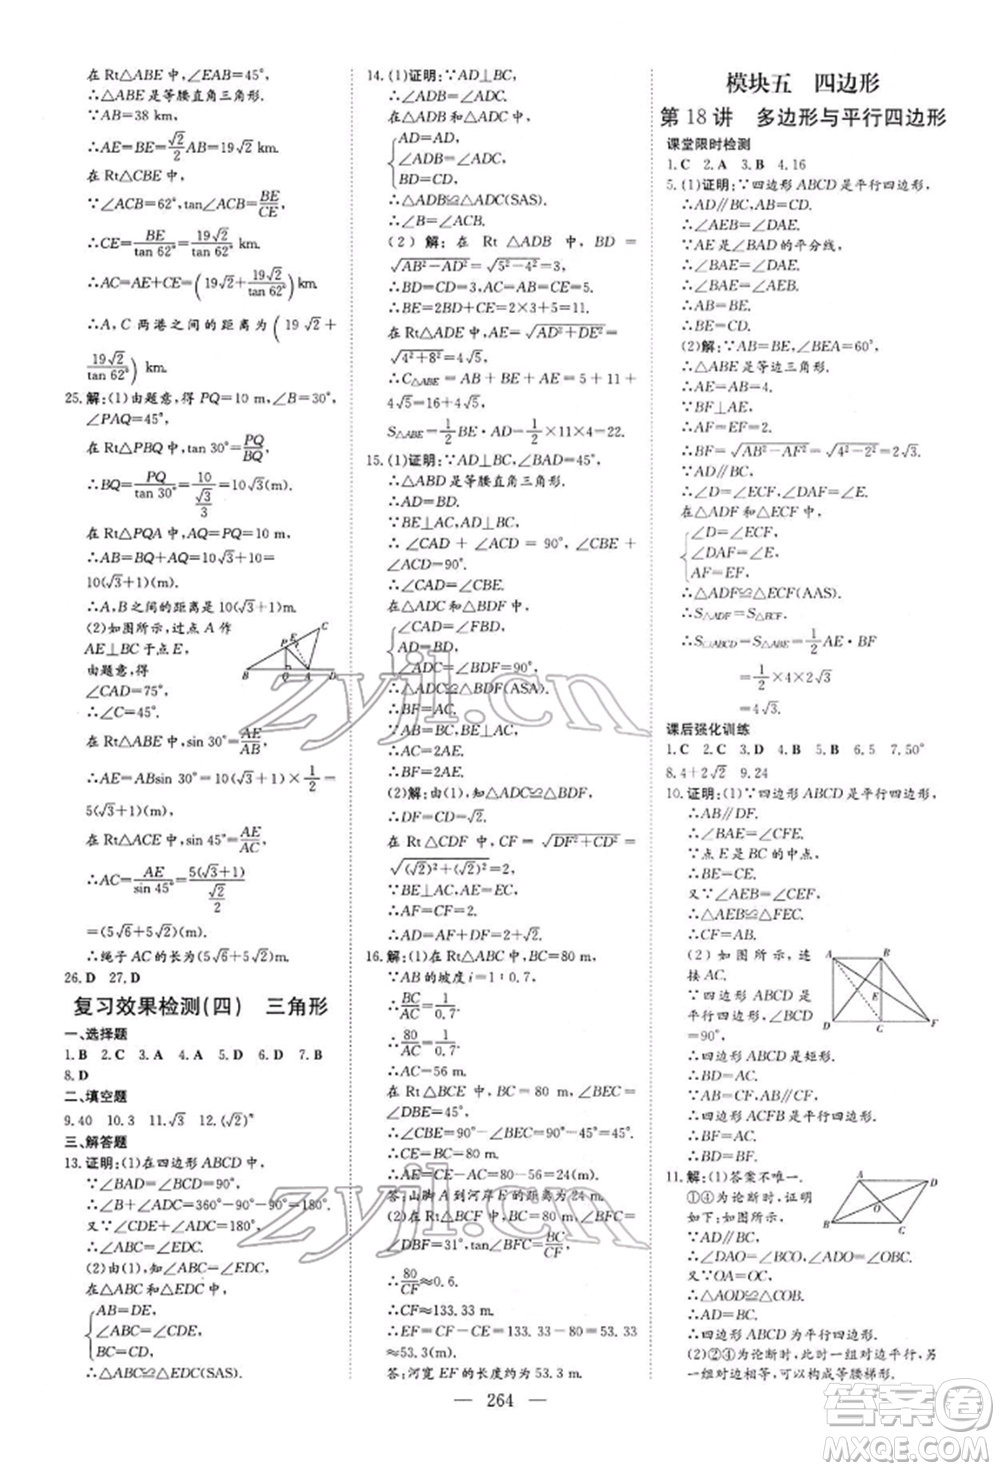 在 Rt△ABE 中,∠EAB=45°,
∴△ABE 是等腰直角三角形.
∵AB=38 km,
∴AE=BE=√2/2 AB=19√2 km.
在 Rt△CBE 中,
∵∠ACB=62°,tan∠ACB=BE/CE,
∴CE=BE/tan 62°=19√2/tan 62° km,
∴AC=AE+CE=(19√2+19√2/tan 62°)km,
∴A,C 两港之间的距离为(19√2+
19√2/tan 62°)km.
25.解:(1)由题意,得 PQ=10 m,∠B=30°,
∠PAQ=45°,
在 Rt△PBQ 中,tan 30°=PQ/BQ,
∴BQ=PQ/tan 30°=10/(√3/3)=10√3(m).
在 Rt△PQA 中,AQ=PQ=10 m,
∴AB=BQ+AQ=10√3+10=
10(√3+1)(m).
∴A,B 之间的距离为 10(√3+1)m.
(2)如图所示,过点 A 作
AE⊥BC 于点 E,
由题意,得
∠CAD=75°,
∴∠C=45°,
在 Rt△ABE 中,sin 30°=AE/AB,
∴AE=ABsin 30°=10(√3+1)×1/2=
5(√3+1)(m).
在 Rt△ACE 中,sin 45°=AE/AC,
∴AC=AE/sin 45°=5(√3+1)/(√2/2)
=(5√6+5√2)(m).
∴绳子 AC 的长为(5√6+5√2)m.
26.D 27.D
复习效果检测(四) 三角形
一、选择题
1.B 2.C 3.A 4.A 5.D 6.D 7.B
8.D
二、填空题
9.40 10.3 11.√3 12.(√2)ⁿ
三、解答题
13.证明:(1)在四边形 ABCD 中,
∵∠BAD=∠BCD=90°,
∴∠B+∠ADC=360°-90°-90°=180°.
又∵∠CDE+∠ADC=180°,
∴∠ABC=∠CDE.
(2)由(1),得∠ABC=∠CDE,
在△ABC 和△EDC 中,
AB=DE,
∠ABC=∠CDE,
BC=CD,
∴△ABC≌△EDC(SAS).
14.(1)证明:∵AD⊥BC,
∴∠ADB=∠ADC=90°.
在△ADB 和△ADC 中,
AD=AD,
∠ADB=∠ADC,
BD=CD,
∴△ADB≌△ADC(SAS).
∴∠B=∠ACB.
(2)解:在 Rt △ADB 中,BD=
√(AB²-AD²)=√(5²-4²)=3,
∴BD=CD=3,AC=AB=CE=5.
∴BE=2BD+CE=2×3+5=11.
在 Rt△ADE 中,AE=√(AD²+DE²)=
√(4²+8²)=4√5,
∴C△ABE=AB+BE+AE=5+11+
4√5=16+4√5,
S△ABE=1/2 BE·AD=1/2×11×4=22.
15.(1)证明:∵AD⊥BC,∠BAD=45°,
∴△ABD 是等腰直角三角形.
∴AD=BD.
∵BE⊥AC,AD⊥BC,
∴∠CAD+∠ACD=90°,∠CBE+
∠ACD=90°.
∴∠CAD=∠CBE.
在△ADC 和△BDF 中,
∠CAD=∠FBD,
AD=BD,
∠ADC=∠BDF=90°,
∴△ADC≌△BDF(ASA).
∴BF=AC.
∵AB=BC,BE⊥AC,
∴AC=2AE.
∴BF=2AE.
(2)解:由(1),知△ADC≌△BDF,
∴DF=CD=√2.
在 Rt△CDF 中,CF=√(DF²+CD²)
=√((√2)²+(√2)²)=2,
∵BE⊥AC,AE=EC,
∴AF=CF=2.
∴AD=AF+DF=2+√2.
16.解:(1)在 Rt△ABC 中,BC=80 m,
∵AB 的坡度 i=1:0.7,
∴BC/AC=1/0.7.
∴80/AC=1/0.7.
∴AC=56 m.
在 Rt△BCE 中,BC=80 m,
∠DBE=45°,
∴∠CBE=90°-∠BEC=90°-45°=45°.
∴CE=BC=80 m.
∴AE=CE-AC=80-56=24(m).
答:山脚 A 到河岸 E 的距离为 24 m.
(2)在 Rt△BCF 中,BC=80 m,
∠DBF=31°,tan∠BFC=BC/CF,
∴80/CF≈0.6.
∴CF≈133.33 m.
∴EF=CF-CE=133.33-80=53.33≈
53.3(m).
答:河宽 EF 的长度约为 53.3 m.
模块五 四边形
第 18 讲 多边形与平行四边形
课堂限时检测
1.C 2.A 3.B 4.16
5.(1)证明:∵四边形 ABCD 是平行四边形,
∴AD∥BC,AB=CD.
∴∠AEB=∠DAE.
∵AE 是∠BAD 的平分线,
∴∠BAE=∠DAE.
∴∠BAE=∠AEB.
∴AB=BE.
∴BE=CD.
(2)解:∵AB=BE,∠BEA=60°,
∴△ABE 是等边三角形.
∴AE=AB=4.
∵BF⊥AE,
∴AF=EF=2.
∴BF=√(AB²-AF²)=√(4²-2²)=2√3.
∵AD∥BC,
∴∠D=∠ECF,∠DAF=∠E.
在△ADF 和△ECF 中,
∠D=∠ECF,
∠DAF=∠E,
AF=EF,
∴△ADF≌△ECF(AAS).
∴S△ADF=S△ECF.
∴S□ABCD=S△ABE=1/2 AE·BF
=1/2×4×2√3
=4√3.
课后强化训练
1.C 2.C 3.D 4.B 5.B 6.5 7.50°
8.4+2√2 9.24
10.证明:(1)∵四边形 ABCD 是平行四边形,
∴AB∥DF.
∴∠BAE=∠CFE.
∵点 E 是 BC 的中点,
∴BE=CE.
又∵∠AEB=∠CEF,
∴△AEB≌△FEC.
∴CF=AB.
(2)如图所示,
连接 AC,
∵四边形 ABCD 是
平行四边形,∠BCD
=90°,
∴四边形 ABCD 是矩形.
∴BD=AC.
∵AB=CF,AB∥CF,
∴四边形 ACFB 是平行四边形.
∴BF=AC.
∴BD=BF.
11.解:(1)答案不唯一.
①④为论断时,证明
如下:∵AD∥BC,
∴∠DAO=∠BCO,∠ADO=∠OBC.
又∵OA=OC,
∴△AOD≌△COB.
∴AD=BC.
∴四边形 ABCD 为平行四边形.
(2)②④为论断时,此时一组对边平行,
另一组对边相等,可以构成等腰梯形.
264
zyjl.cn
zyjl.cn
答案圈
MXQE.COM